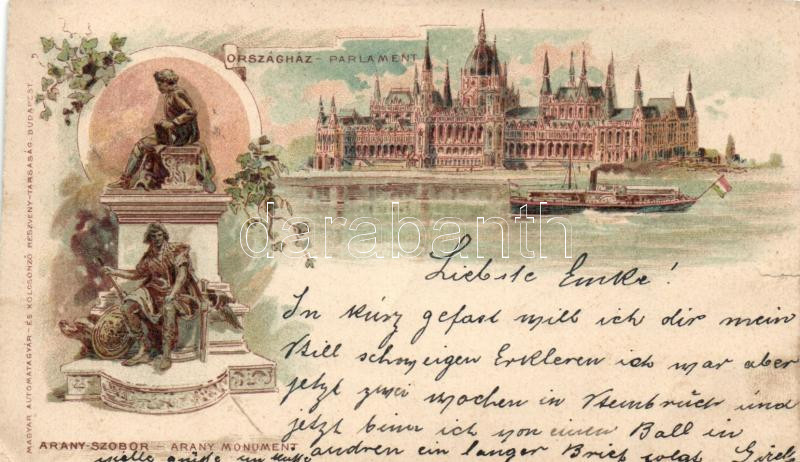 ORSZÁGHÁZ – PARLAMENT
MAGYAR AUTOMATAGYÁR- ÉS KÖLCSÖNZŐ RÉSZVÉNY-TÁRSASÁG. BUDAPEST
darabanth
Liebste Emke!
In kurz gefast will ich dir mein
Still schweigen Erkleren ich war aber
jetzt zwei wochen in Steinbrüch und
jetzt binn ich von einen Ball in
andren ein langer Brief folgt
ARANY-SZOBOR – ARANY MONUMENT
viele grüße